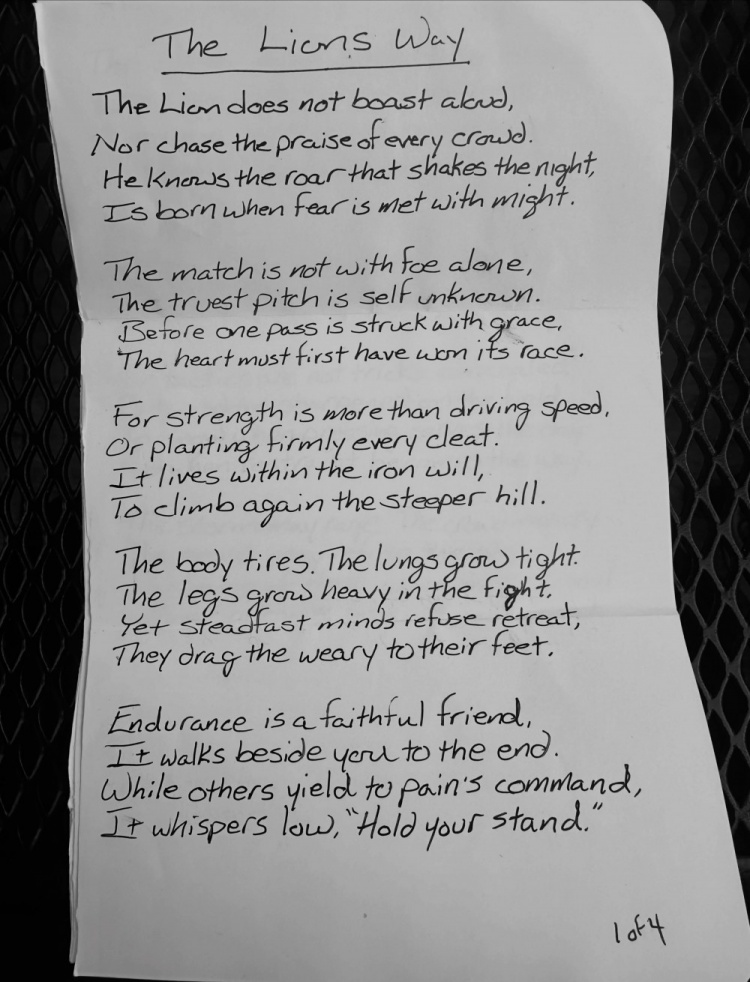 The Lions Way
The Lion does not boast aloud,
Nor chase the praise of every crowd.
He knows the roar that shakes the night,
Is born when fear is met with might.
The match is not with foe alone,
The truest pitch is self unknown.
Before one pass is struck with grace,
The heart must first have won its race.
For strength is more than driving speed,
Or planting firmly every cleat.
It lives within the iron will,
To climb again the steeper hill.
The body tires. The lungs grow tight.
The legs grow heavy in the fight.
Yet steadfast minds refuse retreat,
They drag the weary to their feet.
Endurance is a faithful friend,
It walks beside you to the end.
While others yield to pain's command,
It whispers low, "Hold your stand."
1 of 4